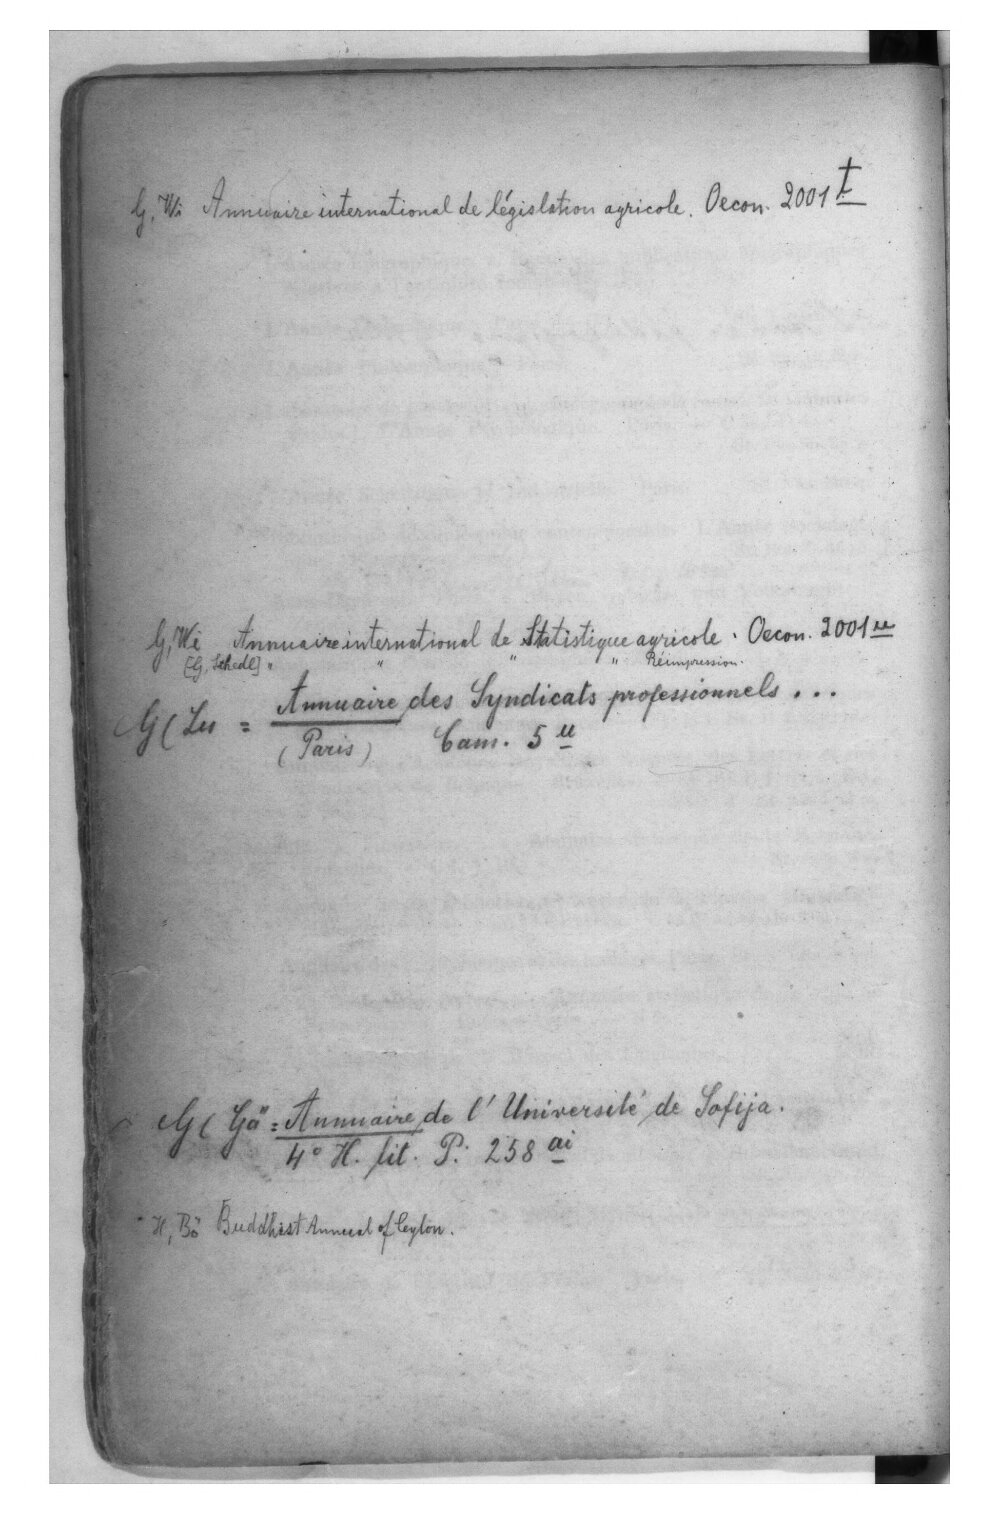 G, Wi Annuaire international de législation agricole. Oecon. 2001 t
G, Wi Annuaire international de Statistique agricole. Oecon. 2001 u
[G, Schedl] " " " " Réimpression.
G( Lu = Annuaire des Syndicats professionnels ...
(Paris) Cam. 5 u
G( Gö = Annuaire de l'Université de Sofija.
4° H. lit. P. 258 ai
H, Bö Buddhist Annual of Ceylon.